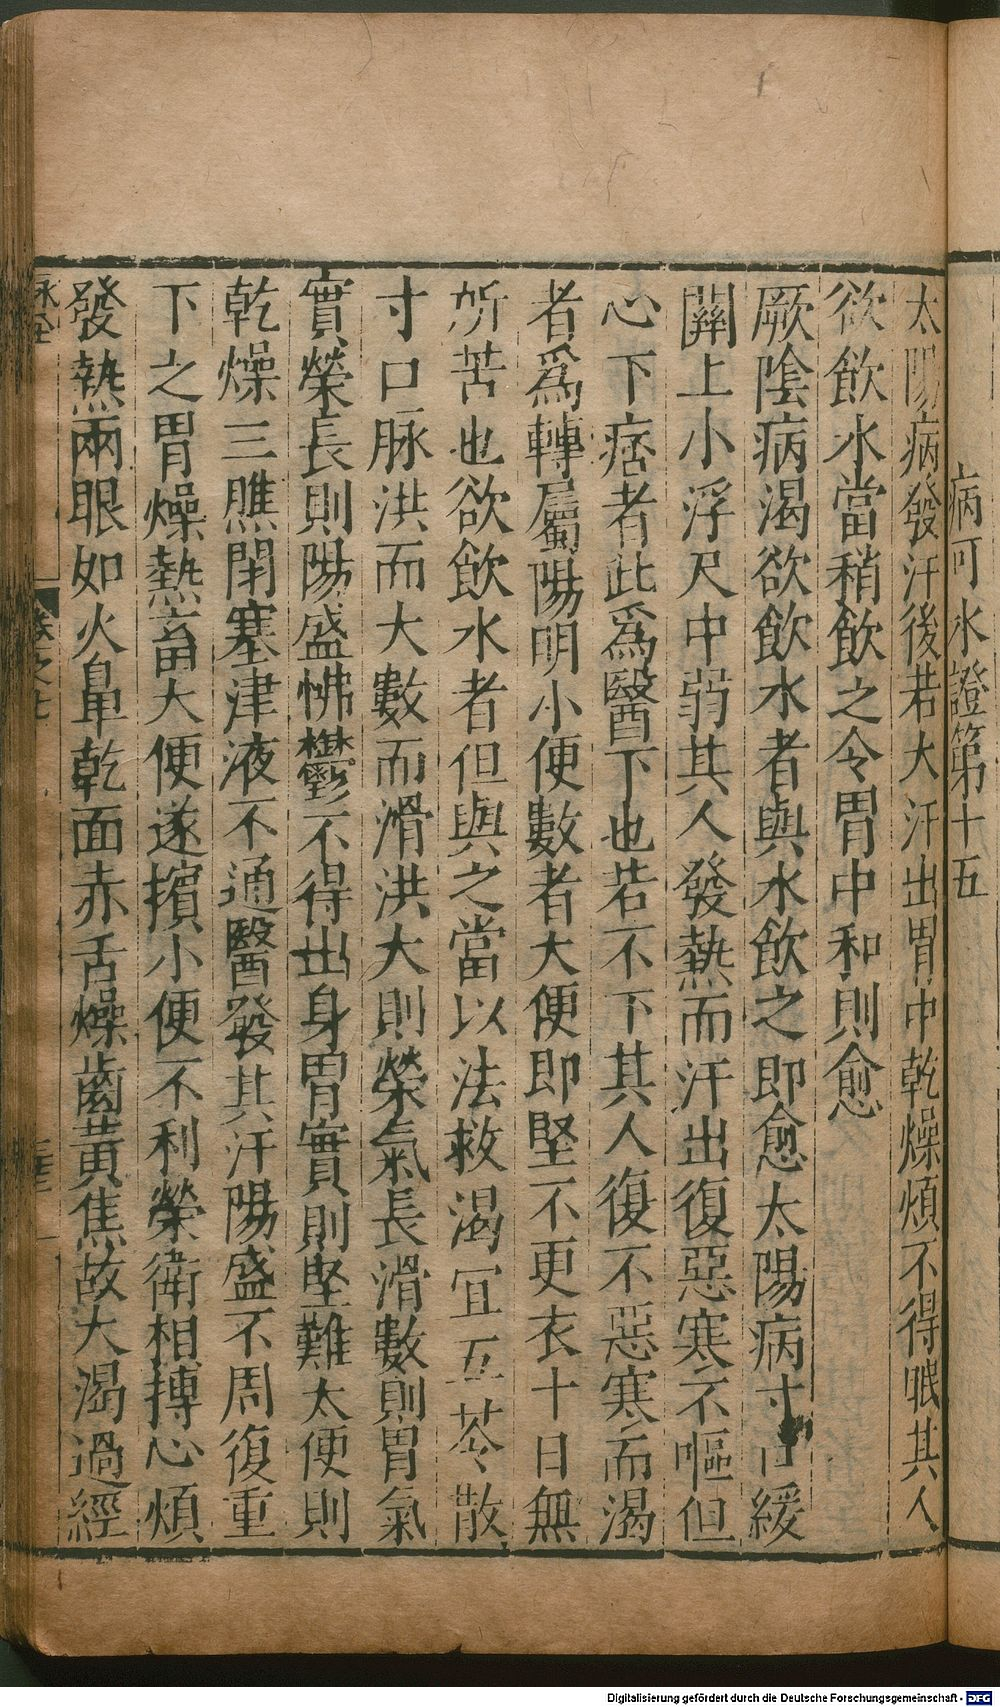 病可水證第十五
太陽病發汗後若大汗出胃中乾燥煩不得眠其人
欲飲水當稍飲之令胃中和則愈
厥陰病渴欲飲水者與水飲之即愈太陽病寸口緩
關上小浮尺中弱其人發熱而汗出復惡寒不嘔但
心下痞者此爲醫下也若不下其人復不惡寒而渴
者爲轉屬陽明小便數者大便即堅不更衣十日無
所苦也欲飲水者但與之當以法救渴宜五苓散
寸口脉洪而大數而滑洪大則榮氣長滑數則胃氣
實榮長則陽盛怫鬱不得出身胃實則堅難大便則
乾燥三膲閉塞津液不通醫發其汗陽盛不周復重
下之胃燥熱畜大便遂擯小便不利榮衛相搏心煩
發熱兩眼如火鼻乾面赤舌燥齒黃焦故大渴過經
脉經
卷之七
Digitalisierung gefördert durch die Deutsche Forschungsgemeinschaft - DFG